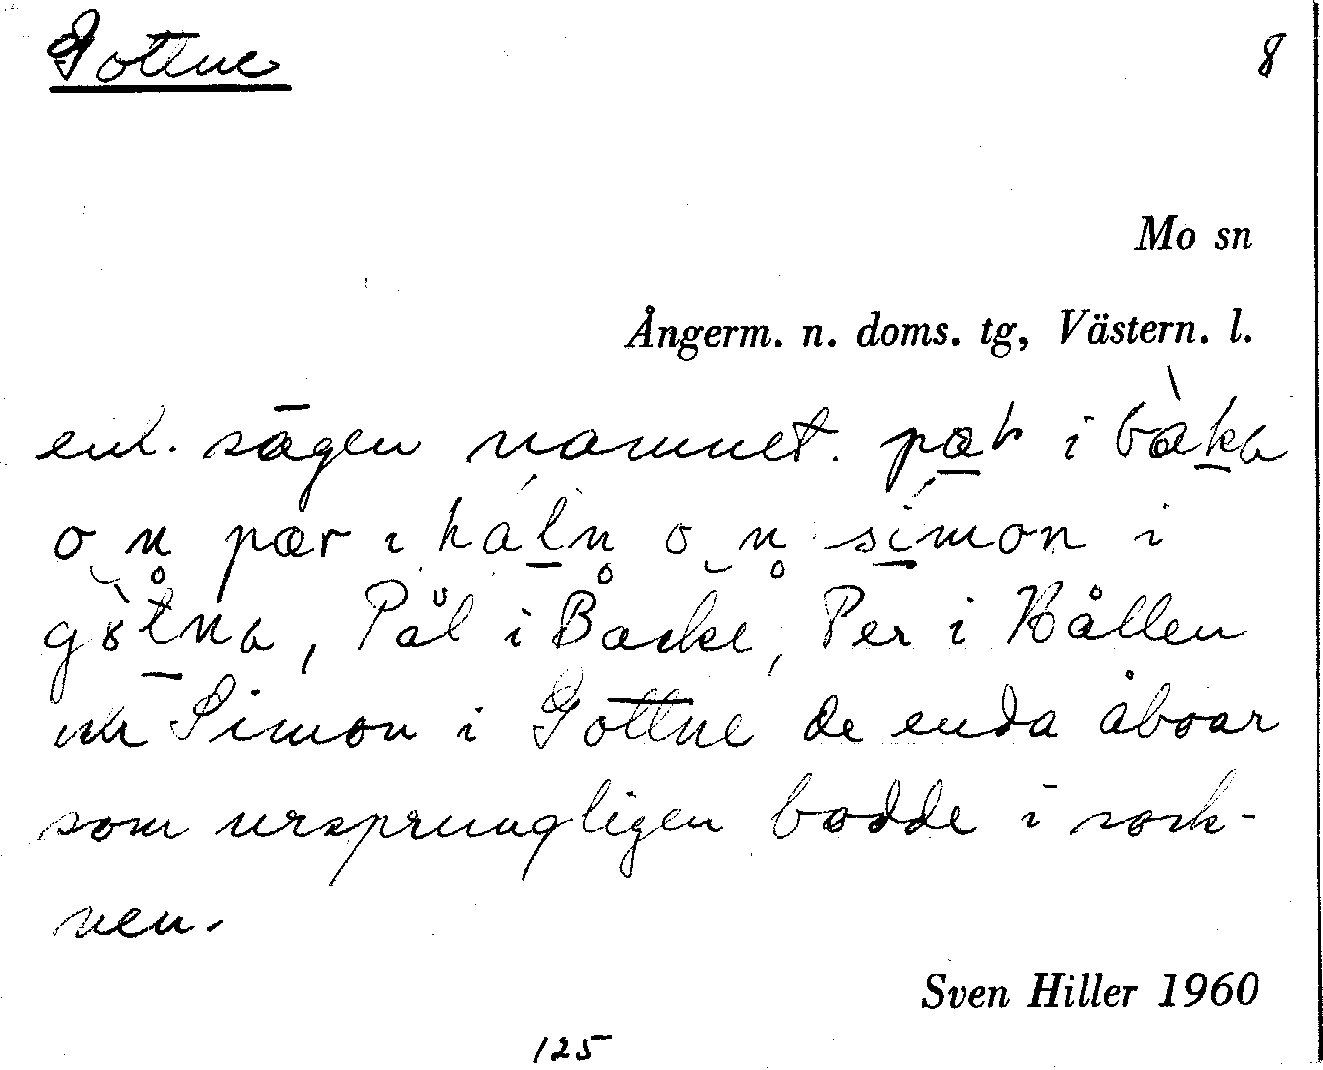 Gottne 8
Mo sn
Ångerm. n. doms. tg, Västern. l.
enl. sägen namnet. i
o n pær i håln o n simon i
Pål i Backe, Per i Hållen
och Simon i Gottne de enda åboar
som ursprungligen bodde i sock-
nen.
Sven Hiller 1960
125